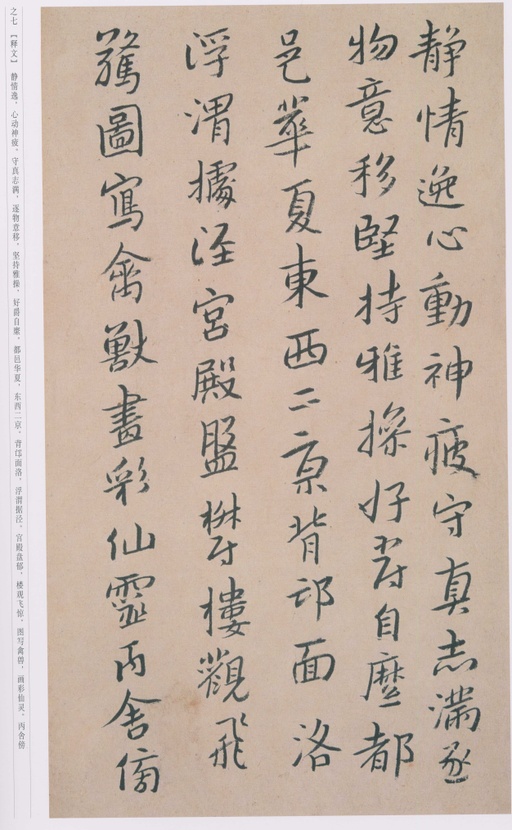 静情逸心動神疲守真志满逐
物意移堅持雅操好爵自縻都
邑華夏東西二京背邙面洛
浮渭據涇宮殿盤欝樓觀飛
驚圖寫禽獸畫彩仙靈丙舍傍
之七 【释文】 静情逸，心动神疲，守真志满，逐物意移，坚持雅操，好爵自縻，都邑华夏，东西二京，背邙面洛，浮渭据泾，宫殿盘郁，楼观飞惊，图写禽兽，画彩仙灵，丙舍傍